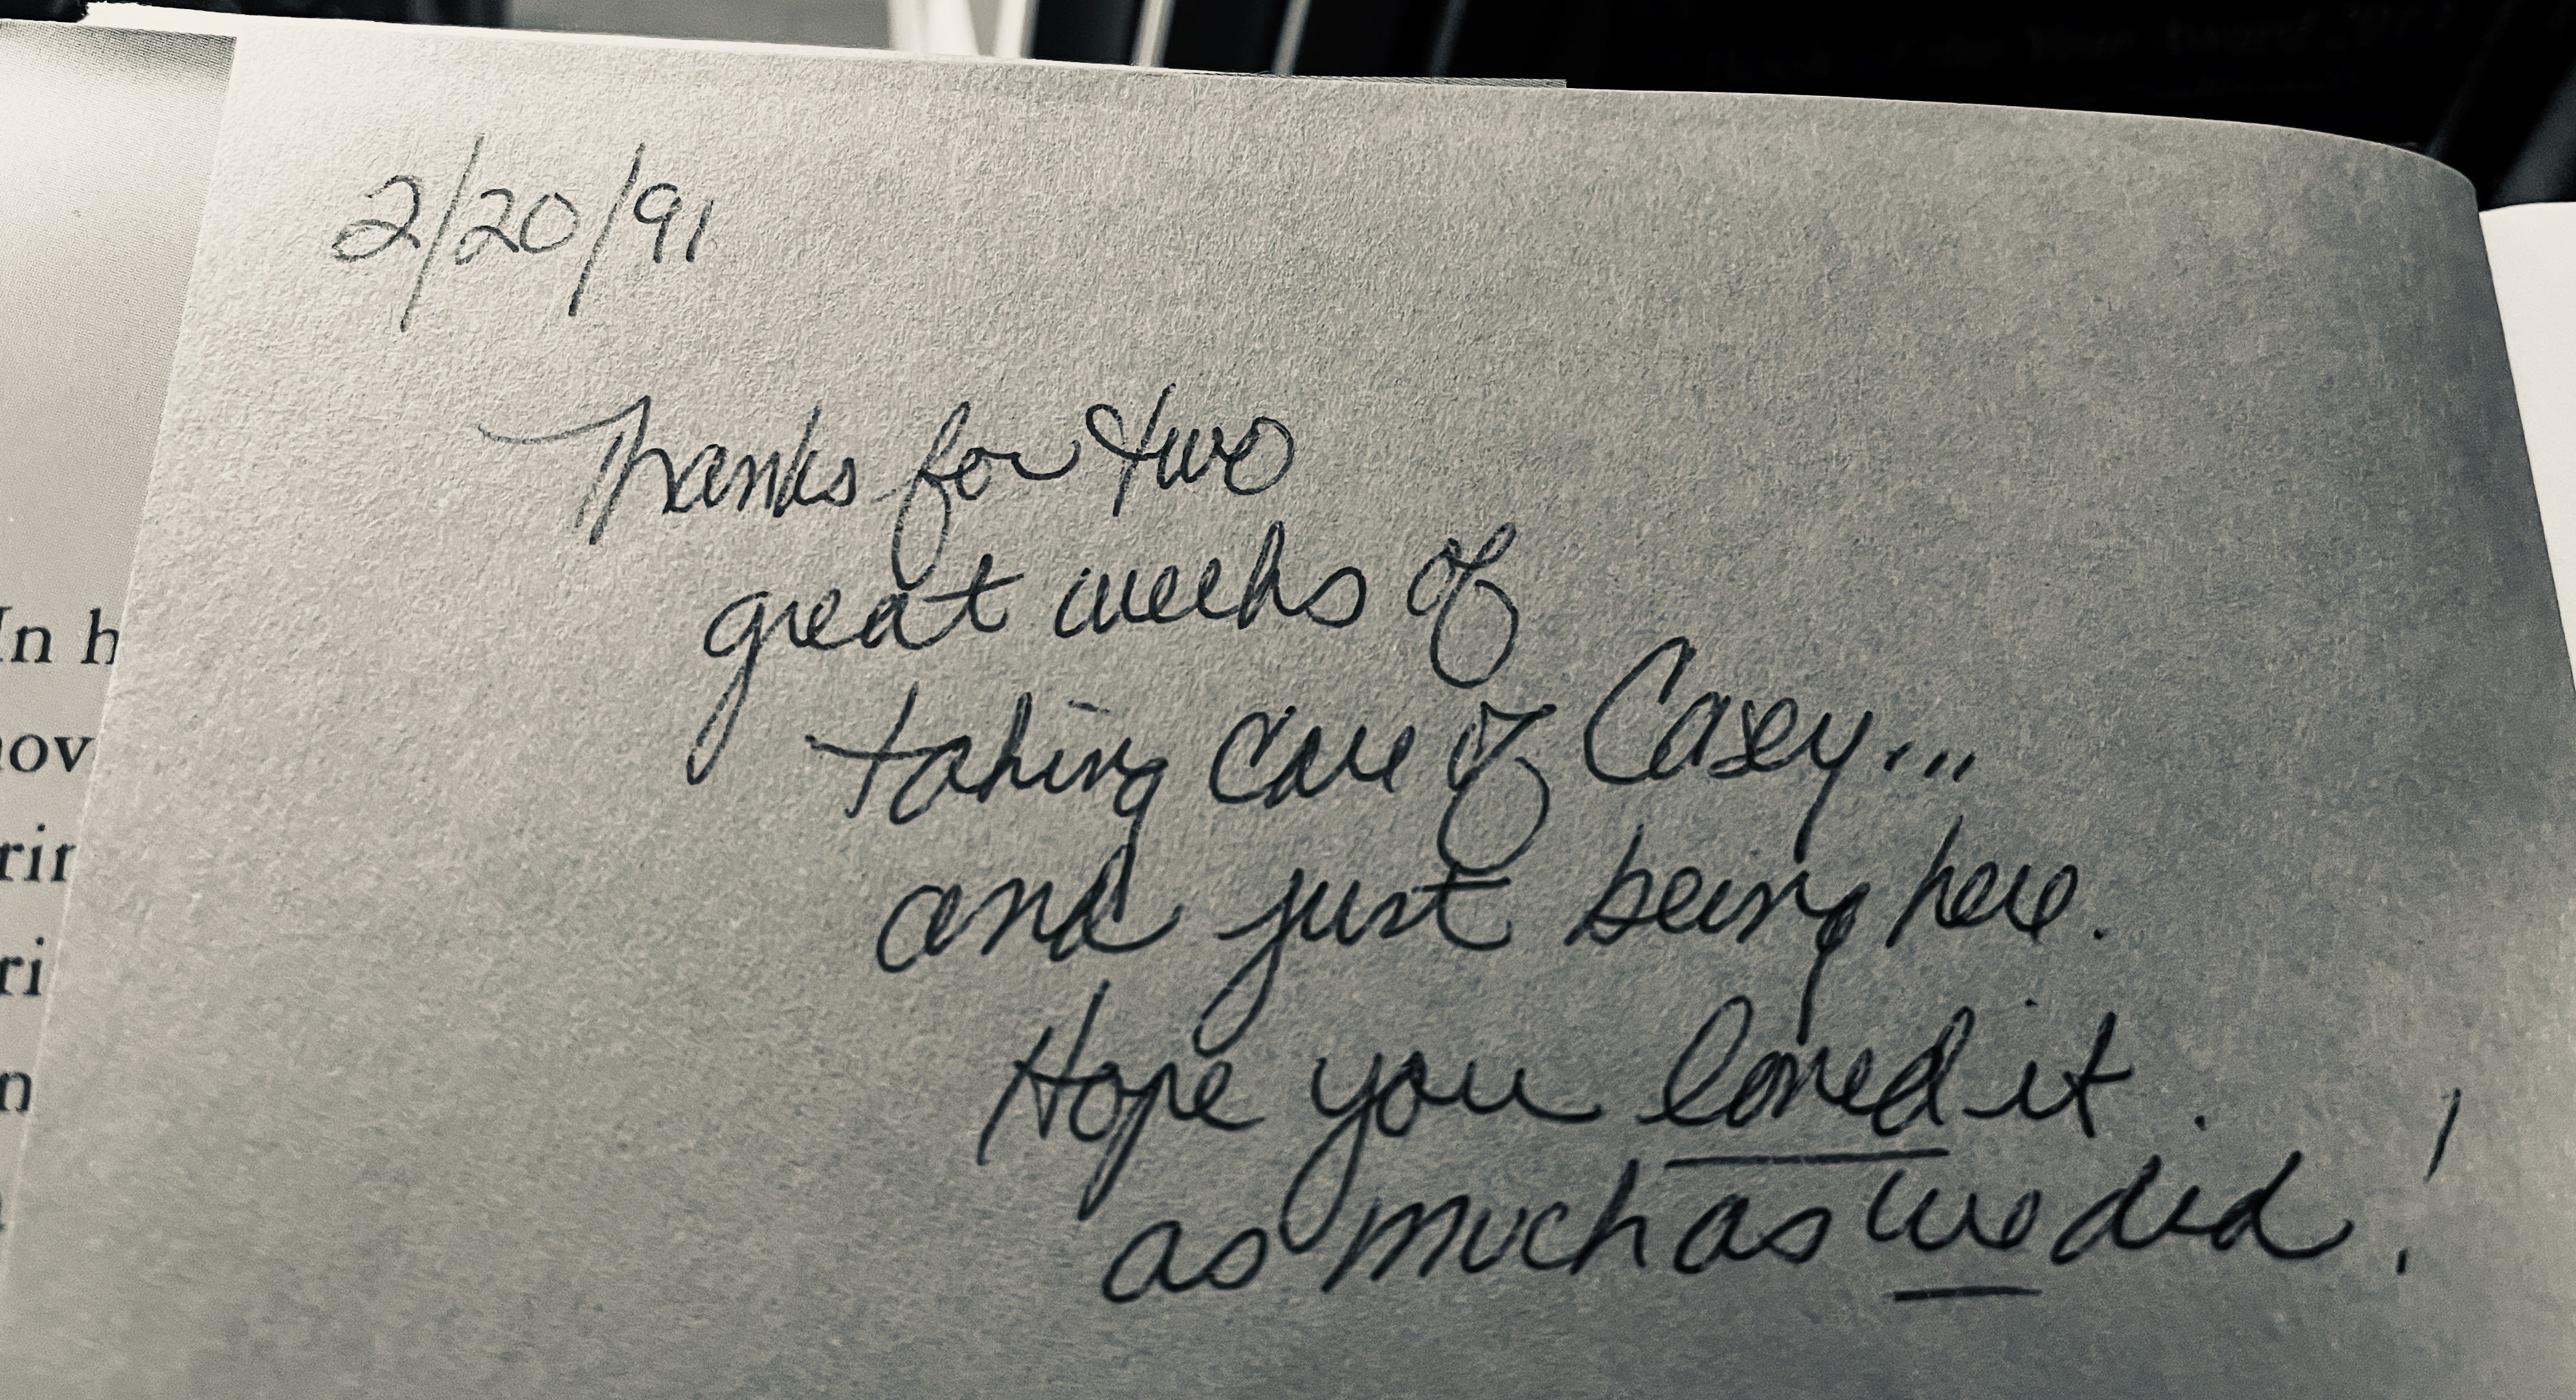 2/20/91
Thanks for two
great weeks of
taking care of Casey...
and just being here.
Hope you loved it.
as much as we did!
In h
ov
rir
ri
n